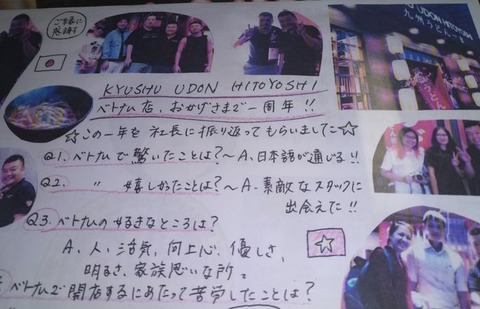 ご縁に
感謝す
UDON HITOYOSHI
九州うどん
KYUSHU UDON HITOYOSHI
ベトナム店、おかげさまで一周年!!
☆この一年を社長に振り返ってもらいました☆
Q1. ベトナムで驚いたことは?～A. 日本語が通じる!!
Q2. 〃 嬉しかったことは?～A. 素敵なスタッフに
出会えた!!
Q3. ベトナムの好きなところは?
A. 人、活気、向上心、優しさ、
明るさ、家族思いな所。
ベトナムで開店するにあたって苦労したことは?